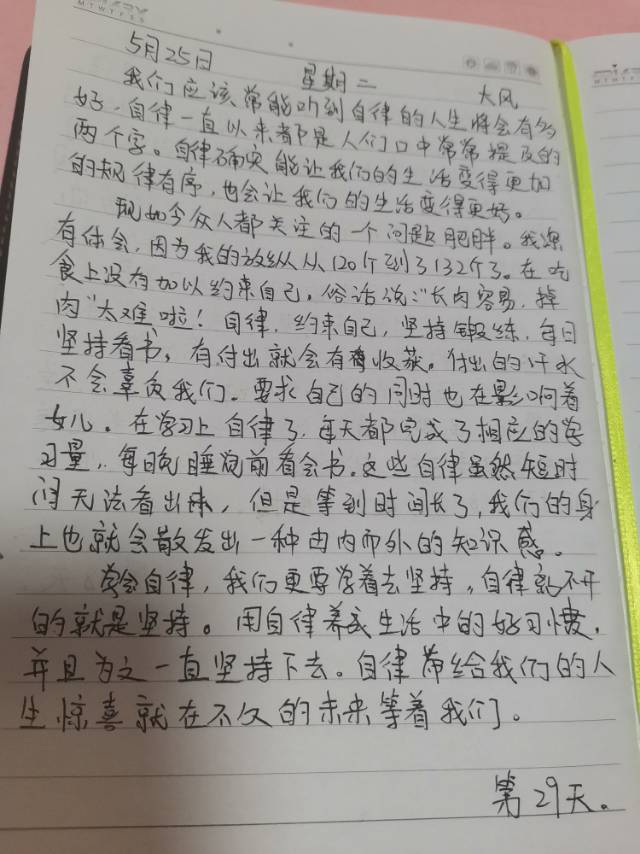 DIARY
MTWTFSS
5月25日 星期二 大风
我们应该常能听到自律的人生将会有多
好，自律一直以来都是人们口中常常提及的
两个字。自律确实能让我们的生活变得更加
的规律有序，也会让我们的生活变得更好。
现如今众人都关注的一个问题肥胖。我深
有体会，因为我的放纵从120斤到了132斤了。在吃
食上没有加以约束自己，俗话说："长肉容易，掉
肉"太难啦！自律，约束自己，坚持锻练，每日
坚持看书，有付出就会有收获。付出的汗水
不会辜负我们。要求自己的同时也在影响着
女儿。在学习上自律了，每天都完成了相应的学
习量，每晚睡觉前看会书。这些自律虽然短时
间无法看出来，但是等到时间长了，我们的身
上也就会散发出一种由内而外的知识感。
学会自律，我们更要学着去坚持，自律离不开
的就是坚持。用自律养成生活中的好习惯，
并且为之一直坚持下去。自律带给我们的人
生惊喜就在不久的未来等着我们。
第29天。